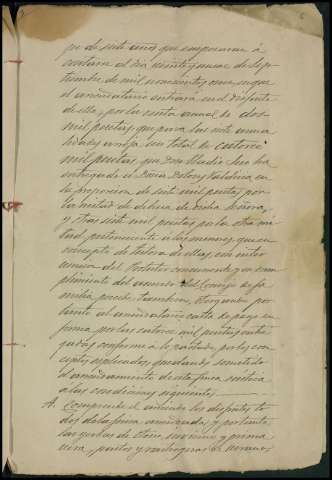 po de siete años que empezarán á
contarse el dia veinte y nueve de Sep-
tiembre de mil novecientos once, en que
el arrendatario entrará en el disfrute
de ella, por la renta anual de dos
mil pesetas, que para las siete anua-
lidades arroja un total de catorce
mil pesetas que Don Eladio ha
entregado á Doña Dolores
la proporción de siete mil pesetas por
la mitad de dehesa de dicha Señora,
y otras siete mil pesetas por la otra mi-
tad perteneciente á los menores, que en
concepto de tutora de ellos, con inter-
vencion del Protutor concurrente que cum-
plimiento del acuerdo del Consejo de fa-
milia, percibe, tambien, otorgando por
tanto al arrendatario carta de pago en
forma por las catorce mil pesetas entre-
gadas conforme á lo pactado, por los con-
ceptos explicados, quedando sometido
el arrendamiento de esta finca rústica
á las condiciones siguientes
A. Comprende el arriendo los disfrutes to-
dos de la finca arrendada y por tanto
las yerbas de invierno y prima-
vera, pastos y de verano,